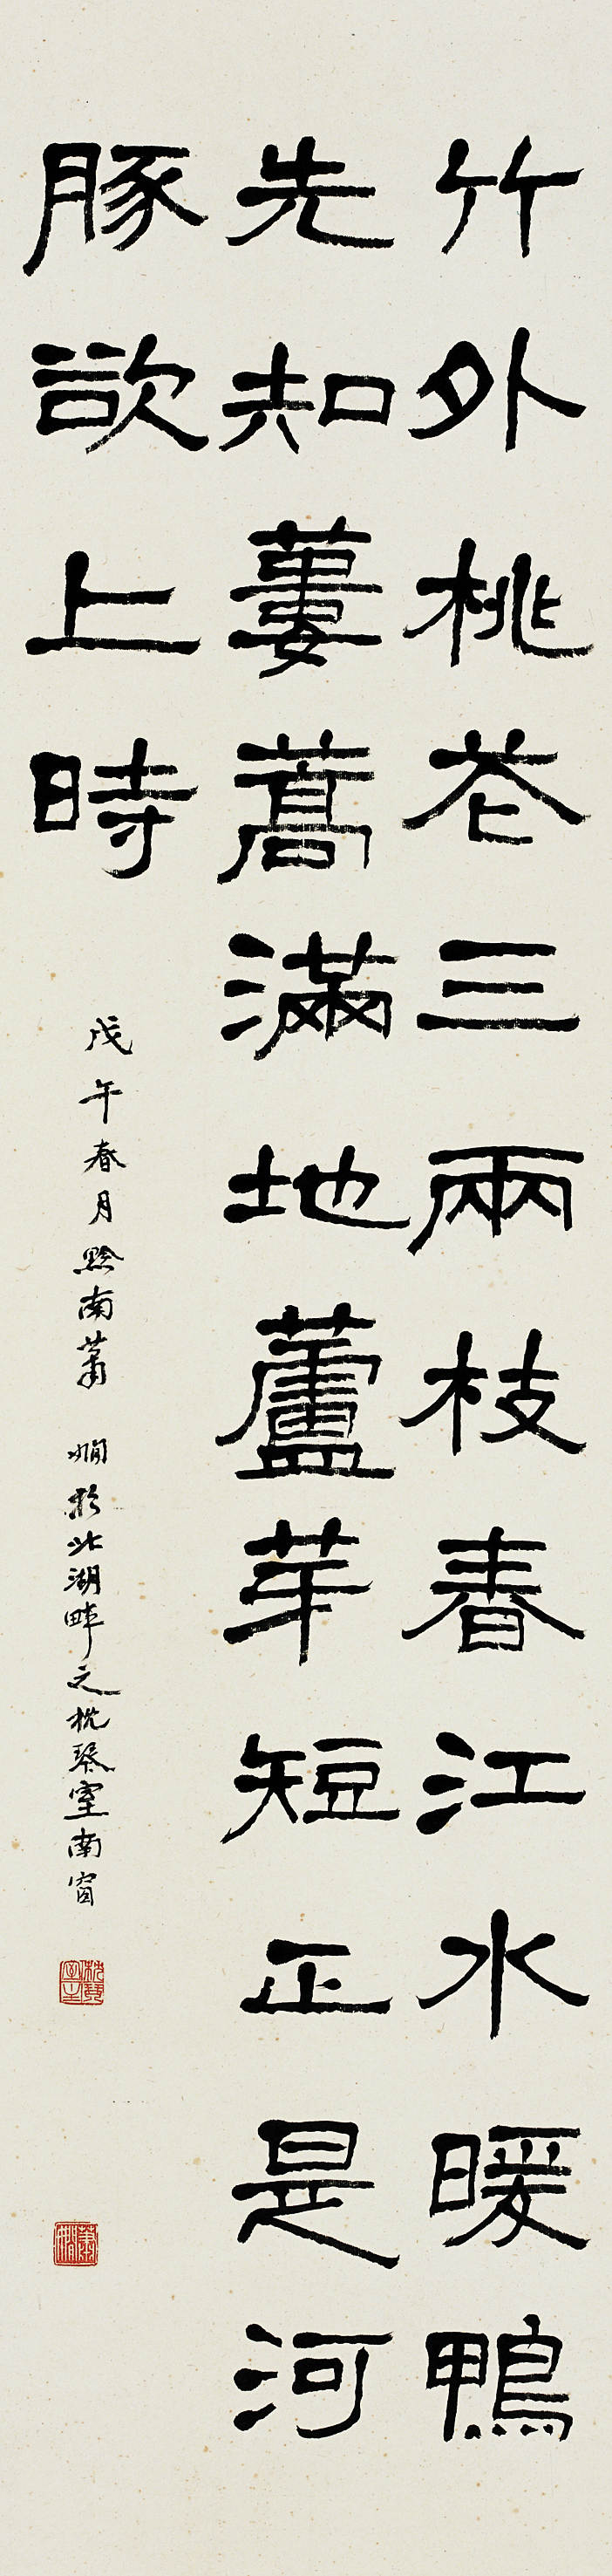 竹外桃花三兩枝春江水暖鴨
先知蔞蒿滿地蘆芽短正是河
豚欲上時
戊午春月黔南蕭嫻於北湖畔之枕琴室南窗
枕琴室主
蕭嫻